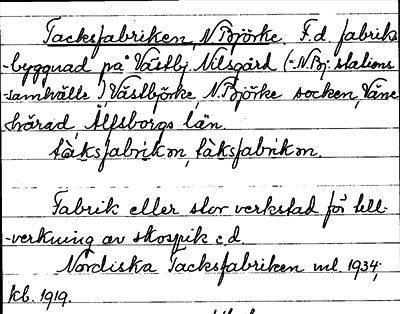 Tacksfabriken, N Björke. F.d. fabriks
-byggnad på Västbj. Nilsgård (=N.Bj. stations
-samhälle) Västbjörke, N. Björke socken, Väne
härad, Älfsborgs län.
täksfabrikən, täksfabrikən.
Fabrik eller stor verkstad för till-
-verkning av skospik e.d.
Nordiska Tacksfabriken ml. 1934;
kb. 1919.